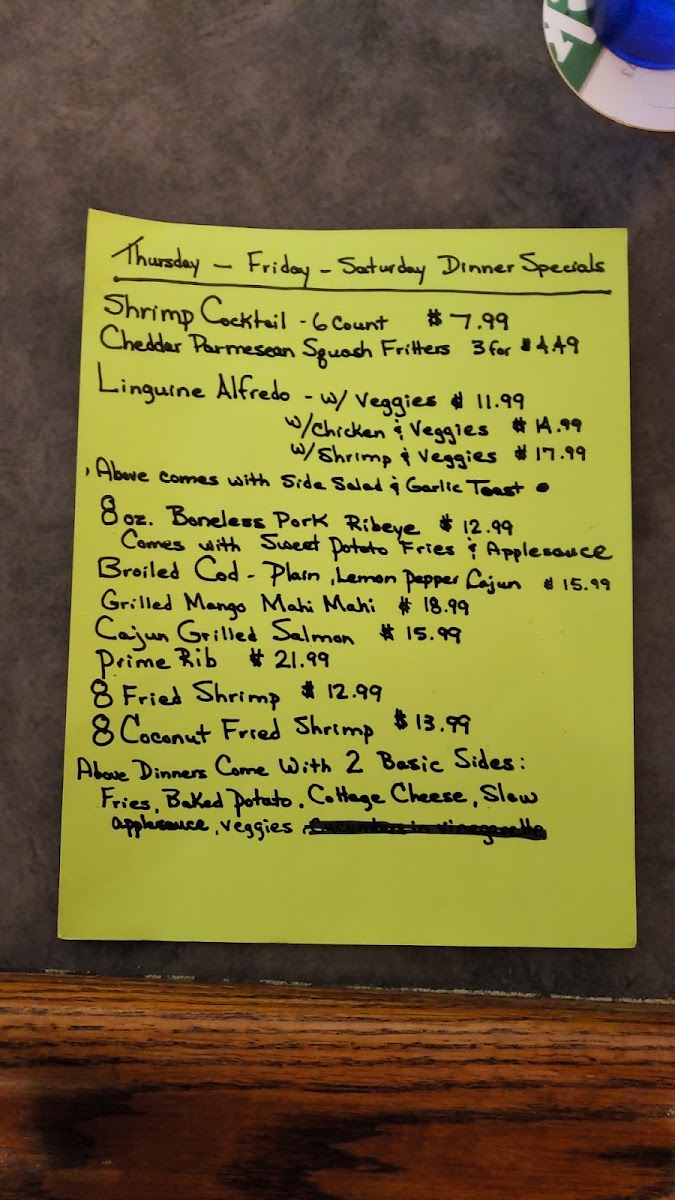 Thursday - Friday - Saturday Dinner Specials
Shrimp Cocktail - 6 Count $ 7.99
Cheddar Parmesean Squash Fritters 3 for $4.49
Linguine Alfredo - w/ Veggies $ 11.99
w/Chicken & Veggies $ 14.99
w/Shrimp & Veggies $ 17.99
Above comes with Side Salad & Garlic Toast
8 oz. Boneless Pork Ribeye $ 12.99
Comes with Sweet Potato Fries & Applesauce
Broiled Cod - Plain, Lemon Pepper Cajun $ 15.99
Grilled Mango Mahi Mahi $ 18.99
Cajun Grilled Salmon $ 15.99
Prime Rib $ 21.99
8 Fried Shrimp $ 12.99
8 Coconut Fried Shrimp $ 13.99
Above Dinners Come With 2 Basic Sides:
Fries, Baked Potato, Cottage Cheese, Slaw
applesauce, veggies,